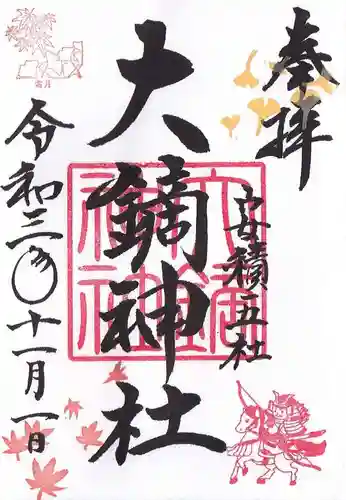 奉拝
安積五社
大鏑神社
令和三年十一月一日
霜月